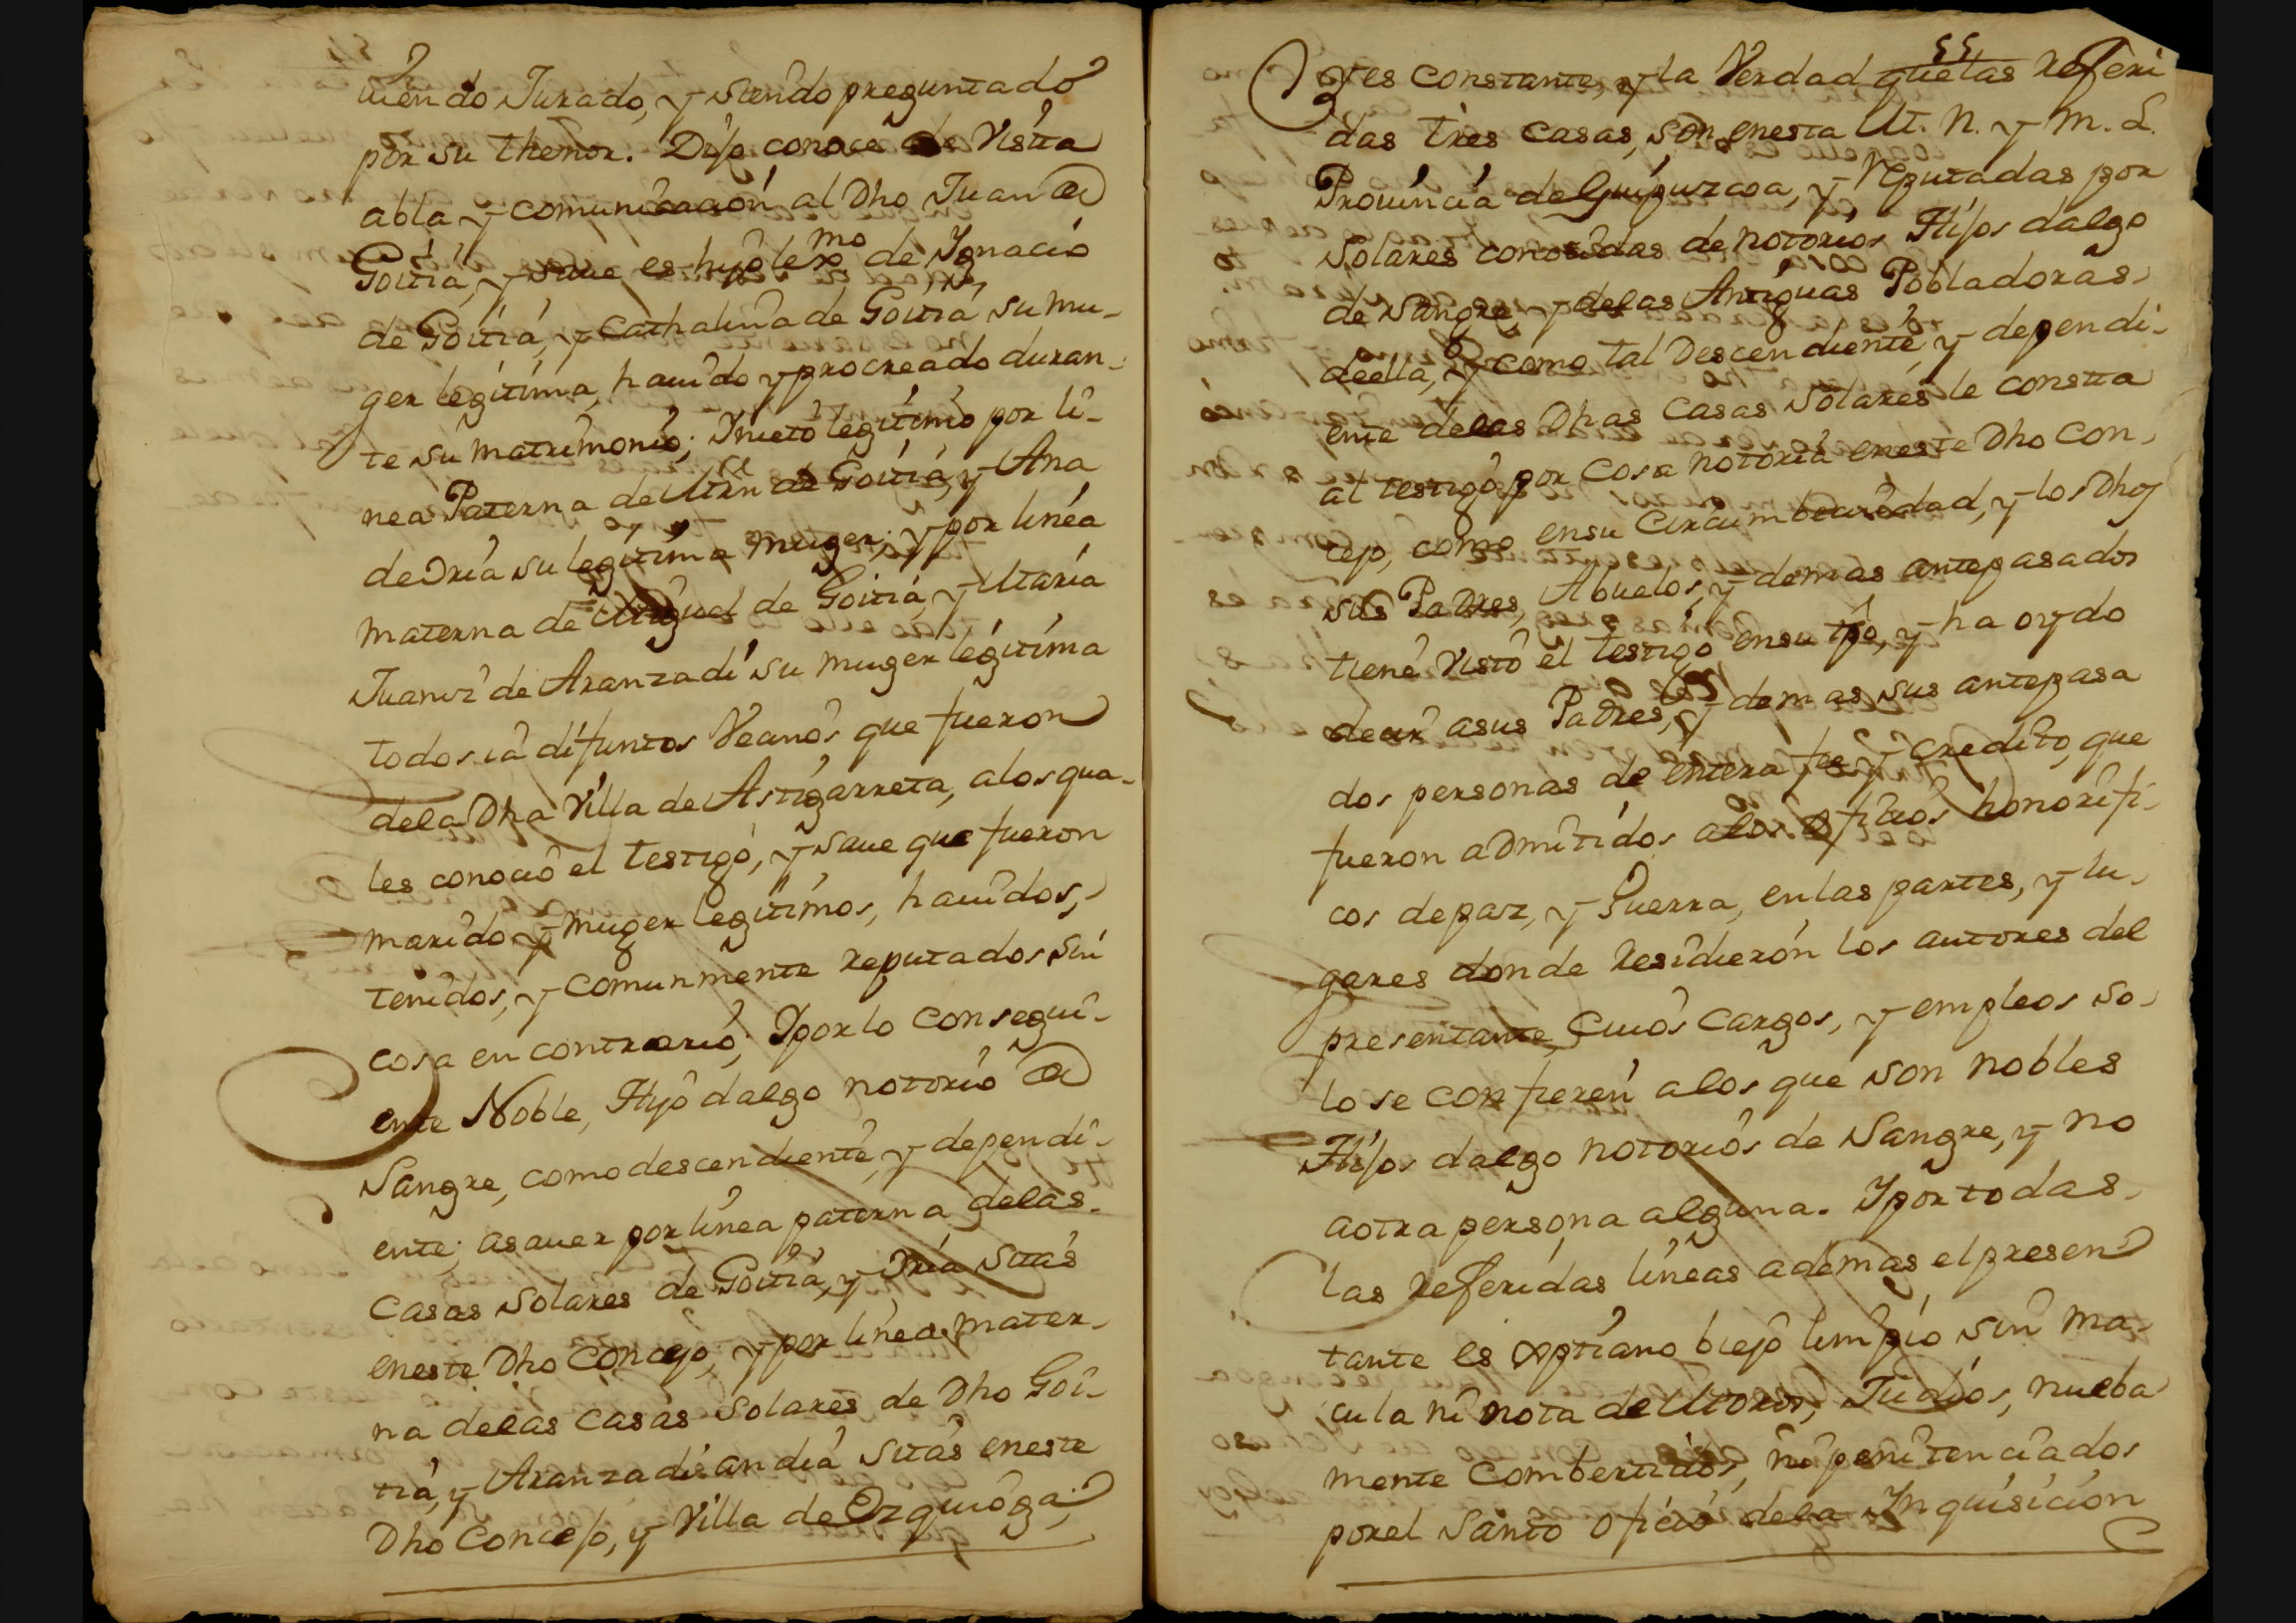 uiendo Jurado, y siendo preguntado
por su thenor. Dijo conoce de Vistta
abla y comunicazion al Dho Juan de
Goitia, y saue es hijo lexmo de Ygnacio
de Goitia, y Cathalina de Goitia su mu-
ger legitima, hauido y procreado duran-
te su matrimonio; Ynieto legitimo por li-
nea Paterna de Mrn de Goitia, y Ana
de Oria su legitima muger; y por linea
materna de Miguel de Goitia, y Maria
Juaniz de Aranzadi su muger legitima
todos ia difuntos Vecinos que fueron
dela Dha Villa de Astigarreta, alos qua-
les conocio el testigo, y saue que fueron
marido y muger legitimos, hauidos,
tenidos, y comunmente reputados sin
cosa en contrario; Yporlo consegui-
ente Noble, Hijo dalgo notorio de
Sangre, como descendiente, y dependi-
ente; asauer por linea paterna delas
Casas solares de Goitia, y Oria sitas
eneste Dho Concejo, y por linea mater-
na delas casas solares de Dho Goi-
tia, y Aranzadi andia sitas eneste
Dho Concejo, y Villa de Ezquioga;
55
Yes constante, y la Verdad quelas referi
das tres casas, son enesta M. N. y M. L.
Prouincia de Guipuzcoa, y Reputadas por
Solares conosidas de notorios Hijos dalgo
de sangre, y delas Antiguas Pobladoras
deella, y como tal Descendiente, y dependi-
ente delas Dhas Casas Solares le constta
al testigo por Cosa notoria eneste Dho Con-
cejo, como ensu Circumbecindad, y los Dhos
sus Padres, Abuelos, y demas antepasados
tiene Visto el testigo ensu tpo, y ha oydo
decir asus Padres, y demas sus antepasa
dos personas de entera fee y credito, que
fueron admitidos alos oficios honorifi-
cos depaz, y Guerra, enlas partes, y lu-
gares donde Residieron los autores del
presentante, Cuios Cargos, y empleos so-
lo se confieren alos que son nobles
Hijos dalgo notorios de Sangre, y no
aotra persona alguna. Yportodas
las referidas lineas ademas elpresen
tante es xptiano biejo limpio sin ma-
cula ni nota de Moros, Judios, nueba
mente combertidos, ni penitenciados
porel Santo oficio dela Inquisicion